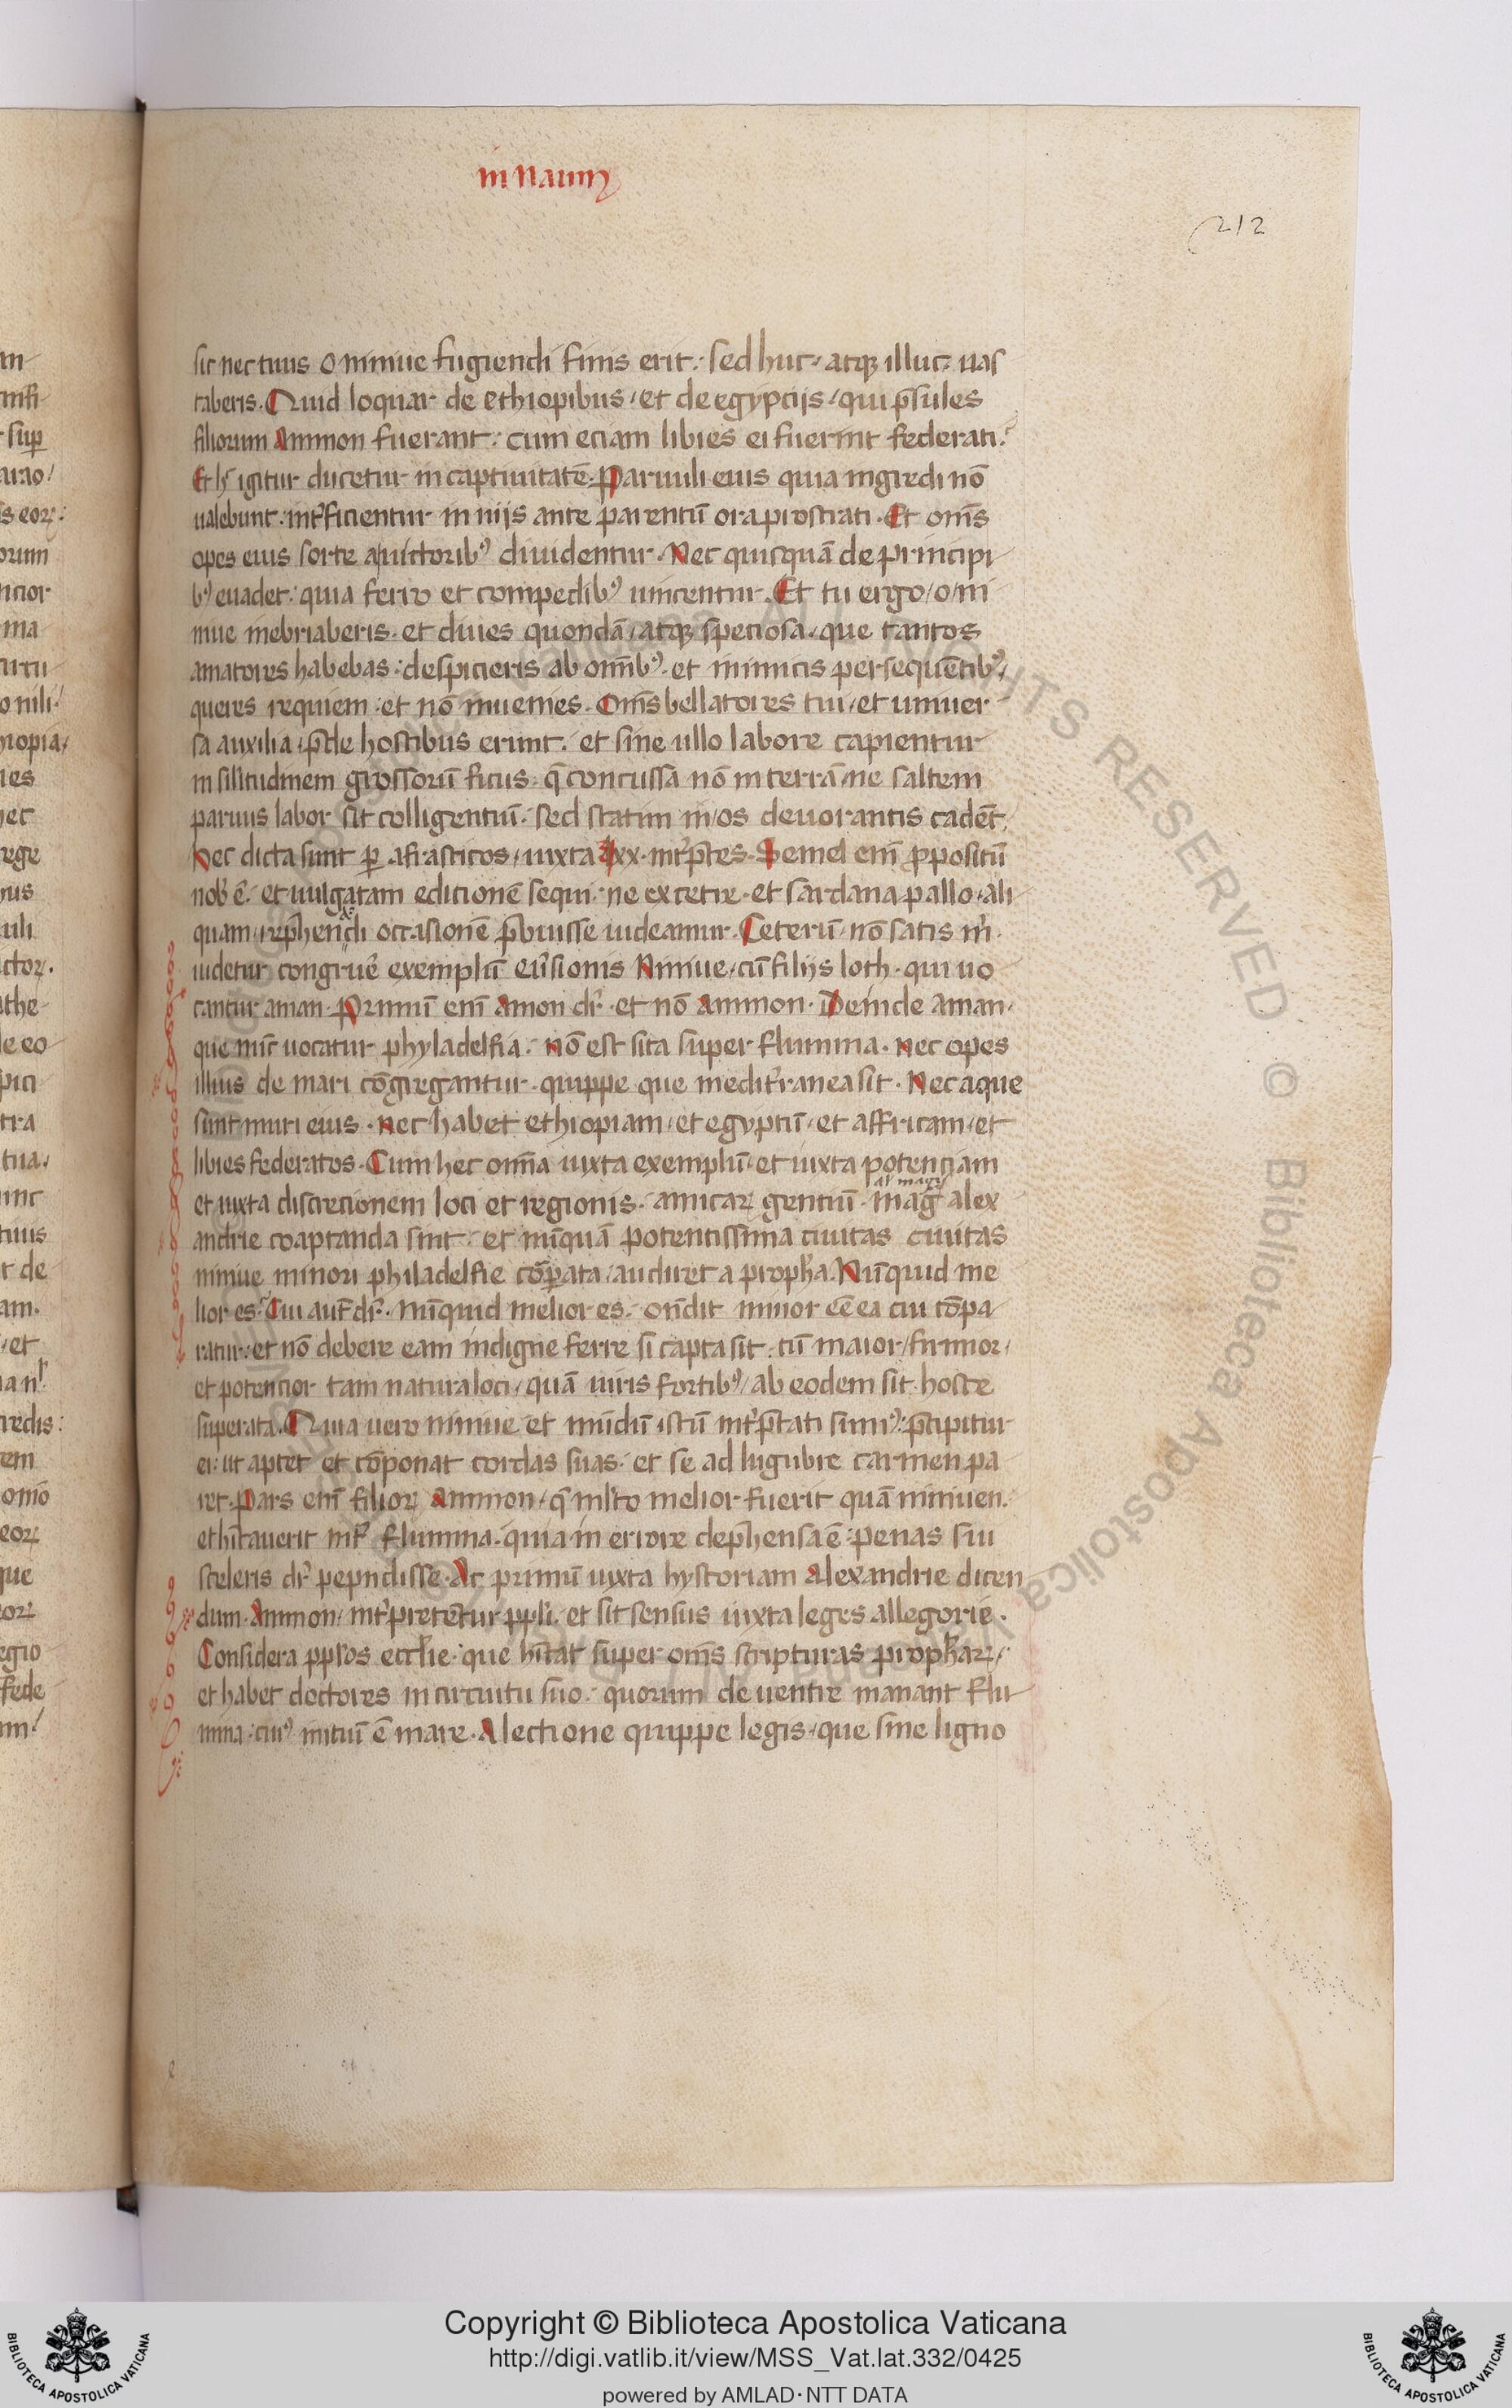 in Naum
212
sic nec tuus o niniue fugiendi finis erit. sed huc atqꝫ illuc uas
taberis. Quid loquar de ethiopibus et de egyptijs qui p̄sules
filiorum Ammon fuerant: cum eciam libies ei fuerint federati.
Et h̄ igitur ducetur in captiuitatē. Paruuli eius quia ingredi nō
ualebunt. int̄ficientur in uijs ante parentū ora prostrati. Et om̄s
opes eius sorte a uictoribꝰ diuidentur. Nec quisquā de principi
bꝰ euadet: quia ferro et compedibꝰ uincentur. Et tu ergo o ni
niue inebriaberis. et diues quondā atqꝫ speciosa que tantos
amatores habebas: despicieris ab om̄ibꝰ. et inimicis persequētibꝰ
queres requiem: et nō inuenies. Om̄s bellatores tui et uniuer
sa auxilia p̄de hostibus erunt. et sine ullo labore capientur
in sil̄itudinem grossorū ficus. q̄ concussa nō in terrā ne saltem
paruus labor sit colligentiū. sed statim in os deuorantis cadēt.
Nec dicta sunt ꝑ afrasticos iuxta lxx. int̄p̄tes. Semel enī ꝓpositū
nob̄ ē. et uulgatam edicionē sequi: ne excetre et sardanapallo ali
quam rep̄hendi occasionē p̄buisse uideamur. Ceterū nō satis m̄
uidetur congrue exemplū eūsionis Niniue cū filijs loth. qui uo
cantur aman. Primū enī Amon dr̄. et nō Ammon. Deinde aman
que nūc uocatur phyladelfia. Nō est sita super flumina. Nec opes
illius de mari cōgregantur. quippe que medit̄ranea sit. Nec aque
sunt muri eius. nec habet ethiopiam et egyptū et affricam et
libies federatos. Cum hec om̄ia iuxta exemplū et iuxta potenciam
al magꝫ
et iuxta discrecionem loci et regionis. amicaꝝ gentiū mag̅ alex
andrie coaptanda sint. et nūquā potentissima ciuitas ciuitas
niniue minori philadelfie cōꝑata audiret a proph̄a. Nūquid me
lior es. Cui aut̄ dr̄. nūquid melior es. on̄dit minor eē ea cui cōpa
ratur. et nō debere eam indigne ferre si capta sit. cū maior firmior
et potencior tam natura loci quā uiris fortibꝰ ab eodem sit hoste
superata. Quia uero niniue et mūdū istū int̄p̄tati sumꝰ: p̄cipitur
ei: ut aptet et cōponat cordas suas. et se ad lugubre carmen pa
ret. Pars enī filioꝝ Ammon q̄ ml̄to melior fuerit quā niniuen.
et hītauerit int̄ flumina. quia in errore dep̄hensa ē: penas sui
sceleris dr̄ pependisse. Ac primū iuxta hystoriam Alexandrie dicen
dum. Ammon int̄pretētur pp̄li. et sit sensus iuxta leges allegorie.
Considera pp̄los eccl̄ie: que hītat super om̄s scripturas proph̄aꝝ
et habet doctores in circuitu suo. quorum de uentre manant flu
mina: cuiꝰ initiū ē mare. A lectione quippe legis que sine ligno
Copyright © Biblioteca Apostolica Vaticana
http://digi.vatlib.it/view/MSS_Vat.lat.332/0425
powered by AMLAD·NTT DATA